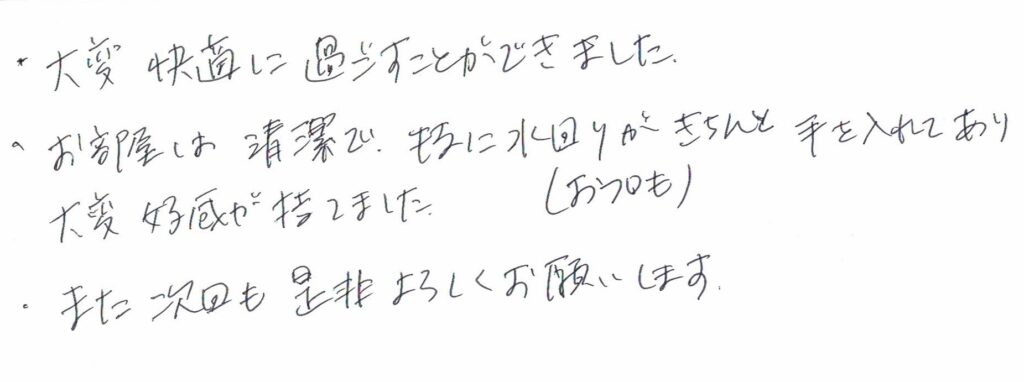 ・大変 快適に過ごすことができました。
・お部屋は 清潔で、特に水回りがきちんと 手を入れてあり
大変 好感が持てました。 (お風呂も)
・また次回も 是非よろしくお願いします。